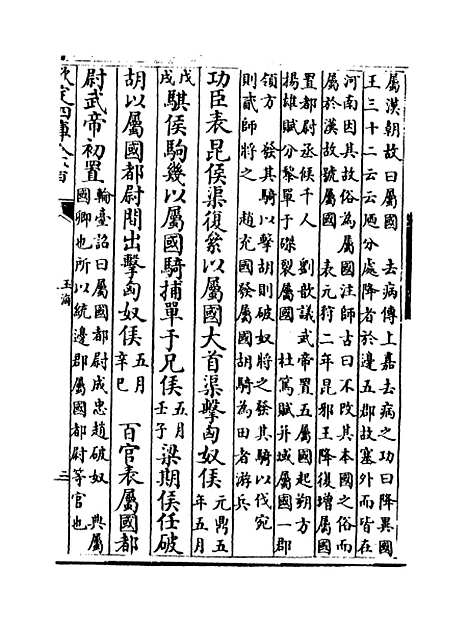 屬漢朝故曰屬國　去病傳上嘉去病之功曰降異國
王三十二云云廼分處降者於邊五郡故塞外而皆在
河南因其故俗為屬國注師古曰不改其本國之俗而
屬於漢故號屬國　表元狩二年昆邪王降復增屬國
置都尉丞候千人　劉歆議武帝置五屬國起朔方
揚雄賦分黎單于磔裂屬國　杜篤賦并域屬國一郡
領方　發其騎以擊胡則破奴將之發其騎以伐宛
則貳師將之　趙充國發屬國胡騎為田者游兵
功臣表昆侯渠復絫以屬國大首渠擊匈奴侯元鼎五
年五月
戊
戌騏侯駒幾以屬國騎捕單于兄侯五月
壬子梁期侯任破
胡以屬國都尉間出擊匈奴侯五月
辛巳　百官表屬國都
尉武帝初置輪臺詔曰屬國都尉成忠趙破奴　典屬
國卿也所以統邊郡屬國都尉等官也
欽定四庫全書
玉海
三